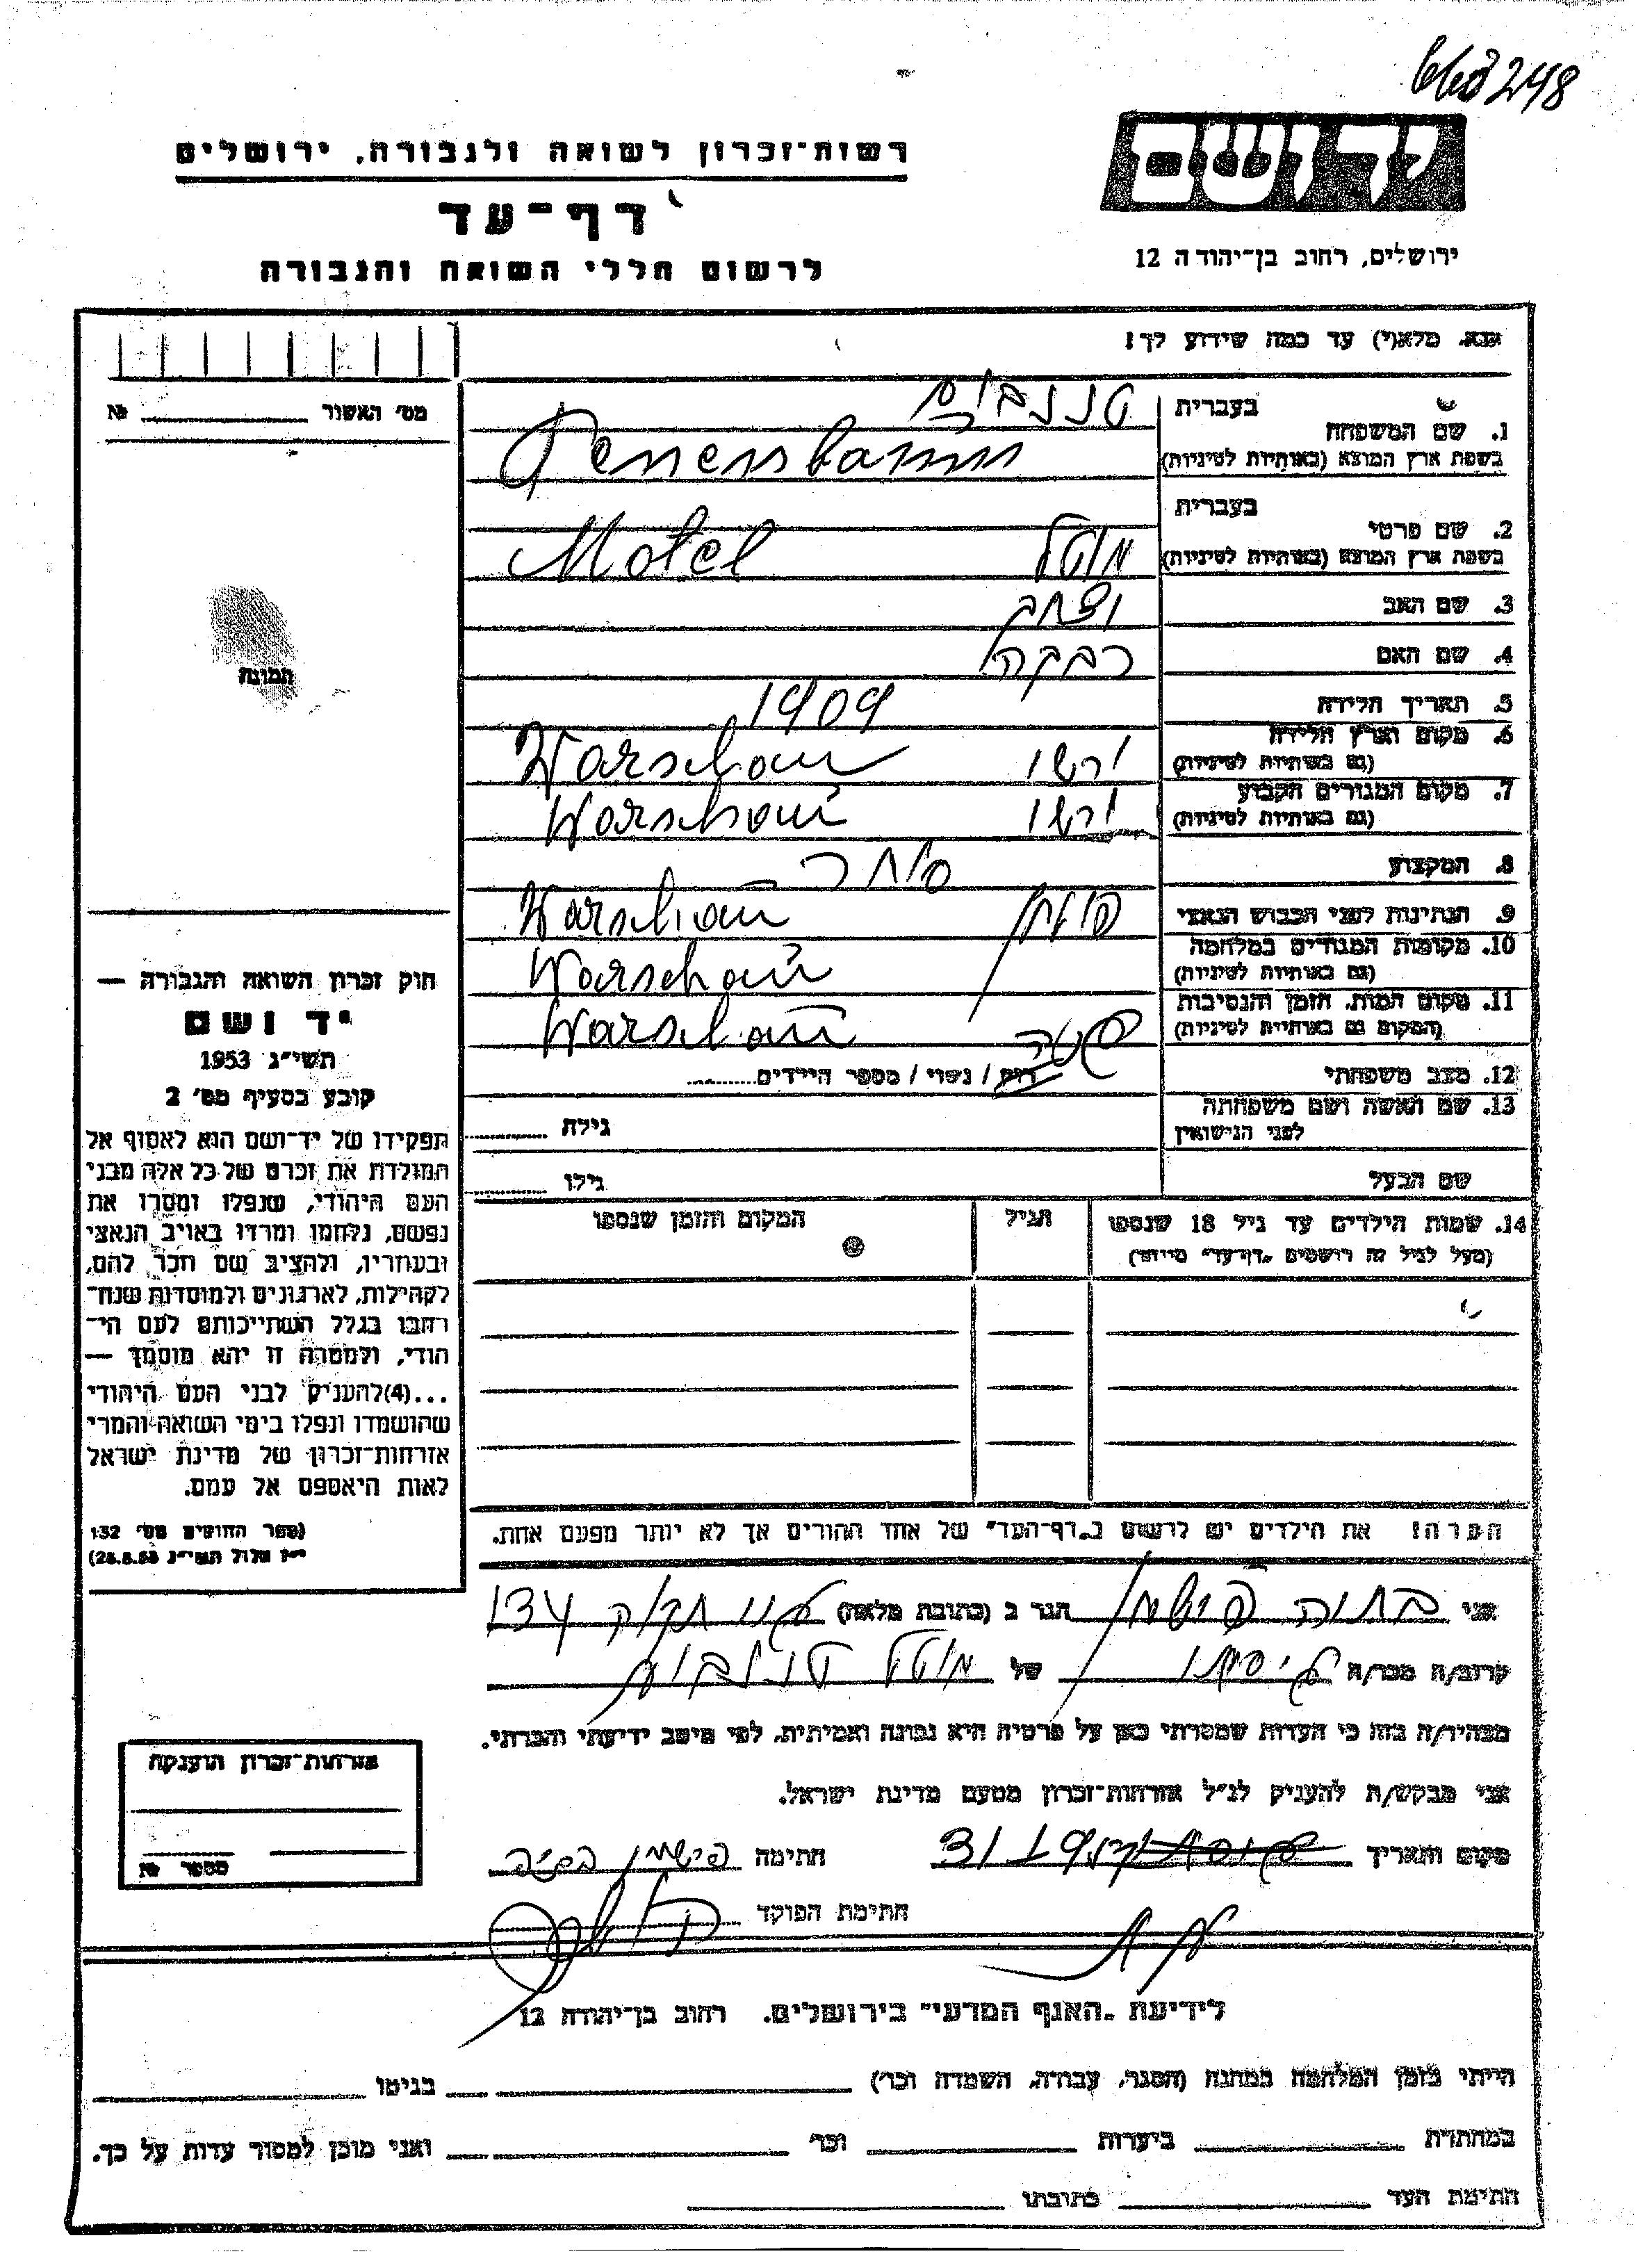 668248
רשות-זכרון לשואה ולגבורה, ירושלים
ידושם
דף-עד
ירושלים, רחוב בן-יהודה 12
לרשום חללי השואה והגבורה
אנא, מלא(י) עד כמה שידוע לך!
מס' האשור № 
בעברית
טננבוים
1. שם המשפחה
בשפת ארץ המוצא (באותיות לטיניות)
Tenenbaum
בעברית
2. שם פרטי
בשפת ארץ המוצא (באותיות לטיניות)
מוטל Motel
3. שם האב
4. שם האם רבקה
5. תאריך הלידה 1909
6. מקום וארץ הלידה
(גם באותיות לטיניות)
ורשו Warschau
7. מקום המגורים הקבוע
(גם באותיות לטיניות)
ורשו Warschau
8. המקצוע סוחר
9. הנתינות לפני הכבוש הנאצי פולין Warschau
10. מקומות המגורים במלחמה
(גם באותיות לטיניות)
Warschau
11. מקום המות, הזמן והנסיבות
(המקום גם באותיות לטיניות)
Warschau
12. מצב משפחתי רווק / נשוי / מספר הילדים
13. שם האשה ושם משפחתה
לפני הנישואין
גילה
שם הבעל גילו
14. שמות הילדים עד גיל 18 שנספו
(מעל לגיל זה רושמים "דף-עד" מיוחד)
הגיל
המקום והזמן שנספו
הערה! את הילדים יש לרשום ב"דף-העד" של אחד ההורים אך לא יותר מפעם אחת.
תמונה
חוק זכרון השואה והגבורה —
יד ושם
תשי"ג 1953
קובע בסעיף מס' 2
תפקידו של יד-ושם הוא לאסוף אל
המולדת את זכרם של כל אלה מבני
העם היהודי, שנפלו ומסרו את
נפשם, נלחמו ומרדו באויב הנאצי
ובעוזריו, ולהציב שם וזכר להם,
לקהילות, לארגונים ולמוסדות שנח-
רבו בגלל השתייכותם לעם הי-
הודי, ולמטרה זו יהא מוסמך —
...(4) להעניק לבני העם היהודי
שהושמדו ונפלו בימי השואה והמרי
אזרחות-זכרון של מדינת ישראל
לאות היאספם אל עמם.
(ספר החוקים מס' 132
י"ז אלול תשי"ג 28.8.53)
אני בתיה פישמן הגר ב (כתובת מלאה) 134
קרוב/ה מכר/ה גיסתו של מוטל טננבוים
מצהיר/ה בזה כי העדות שמסרתי כאן על פרטיה היא נכונה ואמיתית, לפי מיטב ידיעתי והכרתי.
אני מבקש/ת להעניק לנ"ל אזרחות-זכרון מטעם מדינת ישראל.
מקום ותאריך חתימה פישמן בתיה
חתימת הפוקד
אזרחות-זכרון הוענקה
מספר №
לידיעת "האגף המדעי" בירושלים, רחוב בן-יהודה 12
הייתי בזמן המלחמה במחנה (הסגר, עבודה, השמדה וכו') בגיטו
במחתרת ביערות וכו' ואני מוכן למסור עדות על כך.
חתימת העד כתובתו